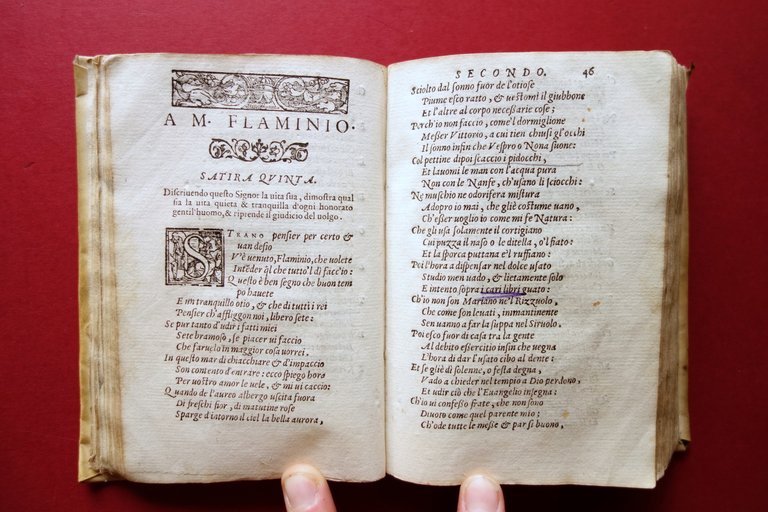 A M. FLAMINIO.
SATIRA QVINTA.
Discriuendo questo Signor la uita sua, dimostra qual
sia la uita quieta & tranquilla d'ogni honorato
gentil huomo, & riprende il giudicio del uolgo.
STRANO pensier per certo &
uan desio
V'è uenuto, Flaminio, che uolete
Intēder q̄l che tutto'l dì facc'io:
Questo è ben segno che buon tem
po hauete
E un tranquillo otio, & che di tutti i rei
Pensier ch'affliggon noi, libero sete:
Se pur tanto d'udir i fatti miei
Sete bramoso, se piacer ui faccio
Che faruelo in maggior cosa uorrei.
In questo mar di chiacchiare & d'impaccio
Son contento d'entrare: ecco spiego hora
Per uostro amor le uele, & mi ui caccio:
Quando de l'aureo albergo uscita fuora
Di freschi fior, di matutine rose
Sparge d'intorno il ciel la bella aurora,
SECONDO. 46
Sciolto dal sonno fuor de l'otiose
Piume esco ratto, & uestomi il giubbone
Et l'altre al corpo necessarie cose;
Perch'io non faccio, come'l dormiglione
Messer Vittorio, a cui tien chiusi gl'occhi
Il sonno insin che Vespro o Nona suone:
Col pettine dipoi scaccio i pidocchi,
Et lauomi le man con l'acqua pura
Non con le Nanfe, ch'usano li sciocchi:
Ne muschio ne odorifera mistura
Adopro io mai, che gliè costume uano,
Ch'esser uoglio io come mi fe Natura:
Che gli usa solamente il cortigiano
Cui puzza il naso o le ditella, o'l fiato:
Et la sporca puttana e'l ruffiano:
Poi l'hora a dispensar nel dolce usato
Studio men uado, & lietamente solo
E intento sopra i cari libri guato:
Ch'io non son Mariano ne'l Rizzuolo,
Che come son leuati, immantinente
Sen uanno a far la suppa nel Siruolo.
Poi esco fuor di casa tra la gente
Al debito essercitio insin che uegna
L'hora di dar l'usato cibo al dente:
Et se gliè dì solenne, o festa degna,
Vado a chieder nel tempio a Dio perdono,
Et udir ciò che l'Euangelio insegna:
Ch'io ui confesso frate, che non sono
Diuoto come quel parente mio;
Ch'ode tutte le messe & par sì buono,